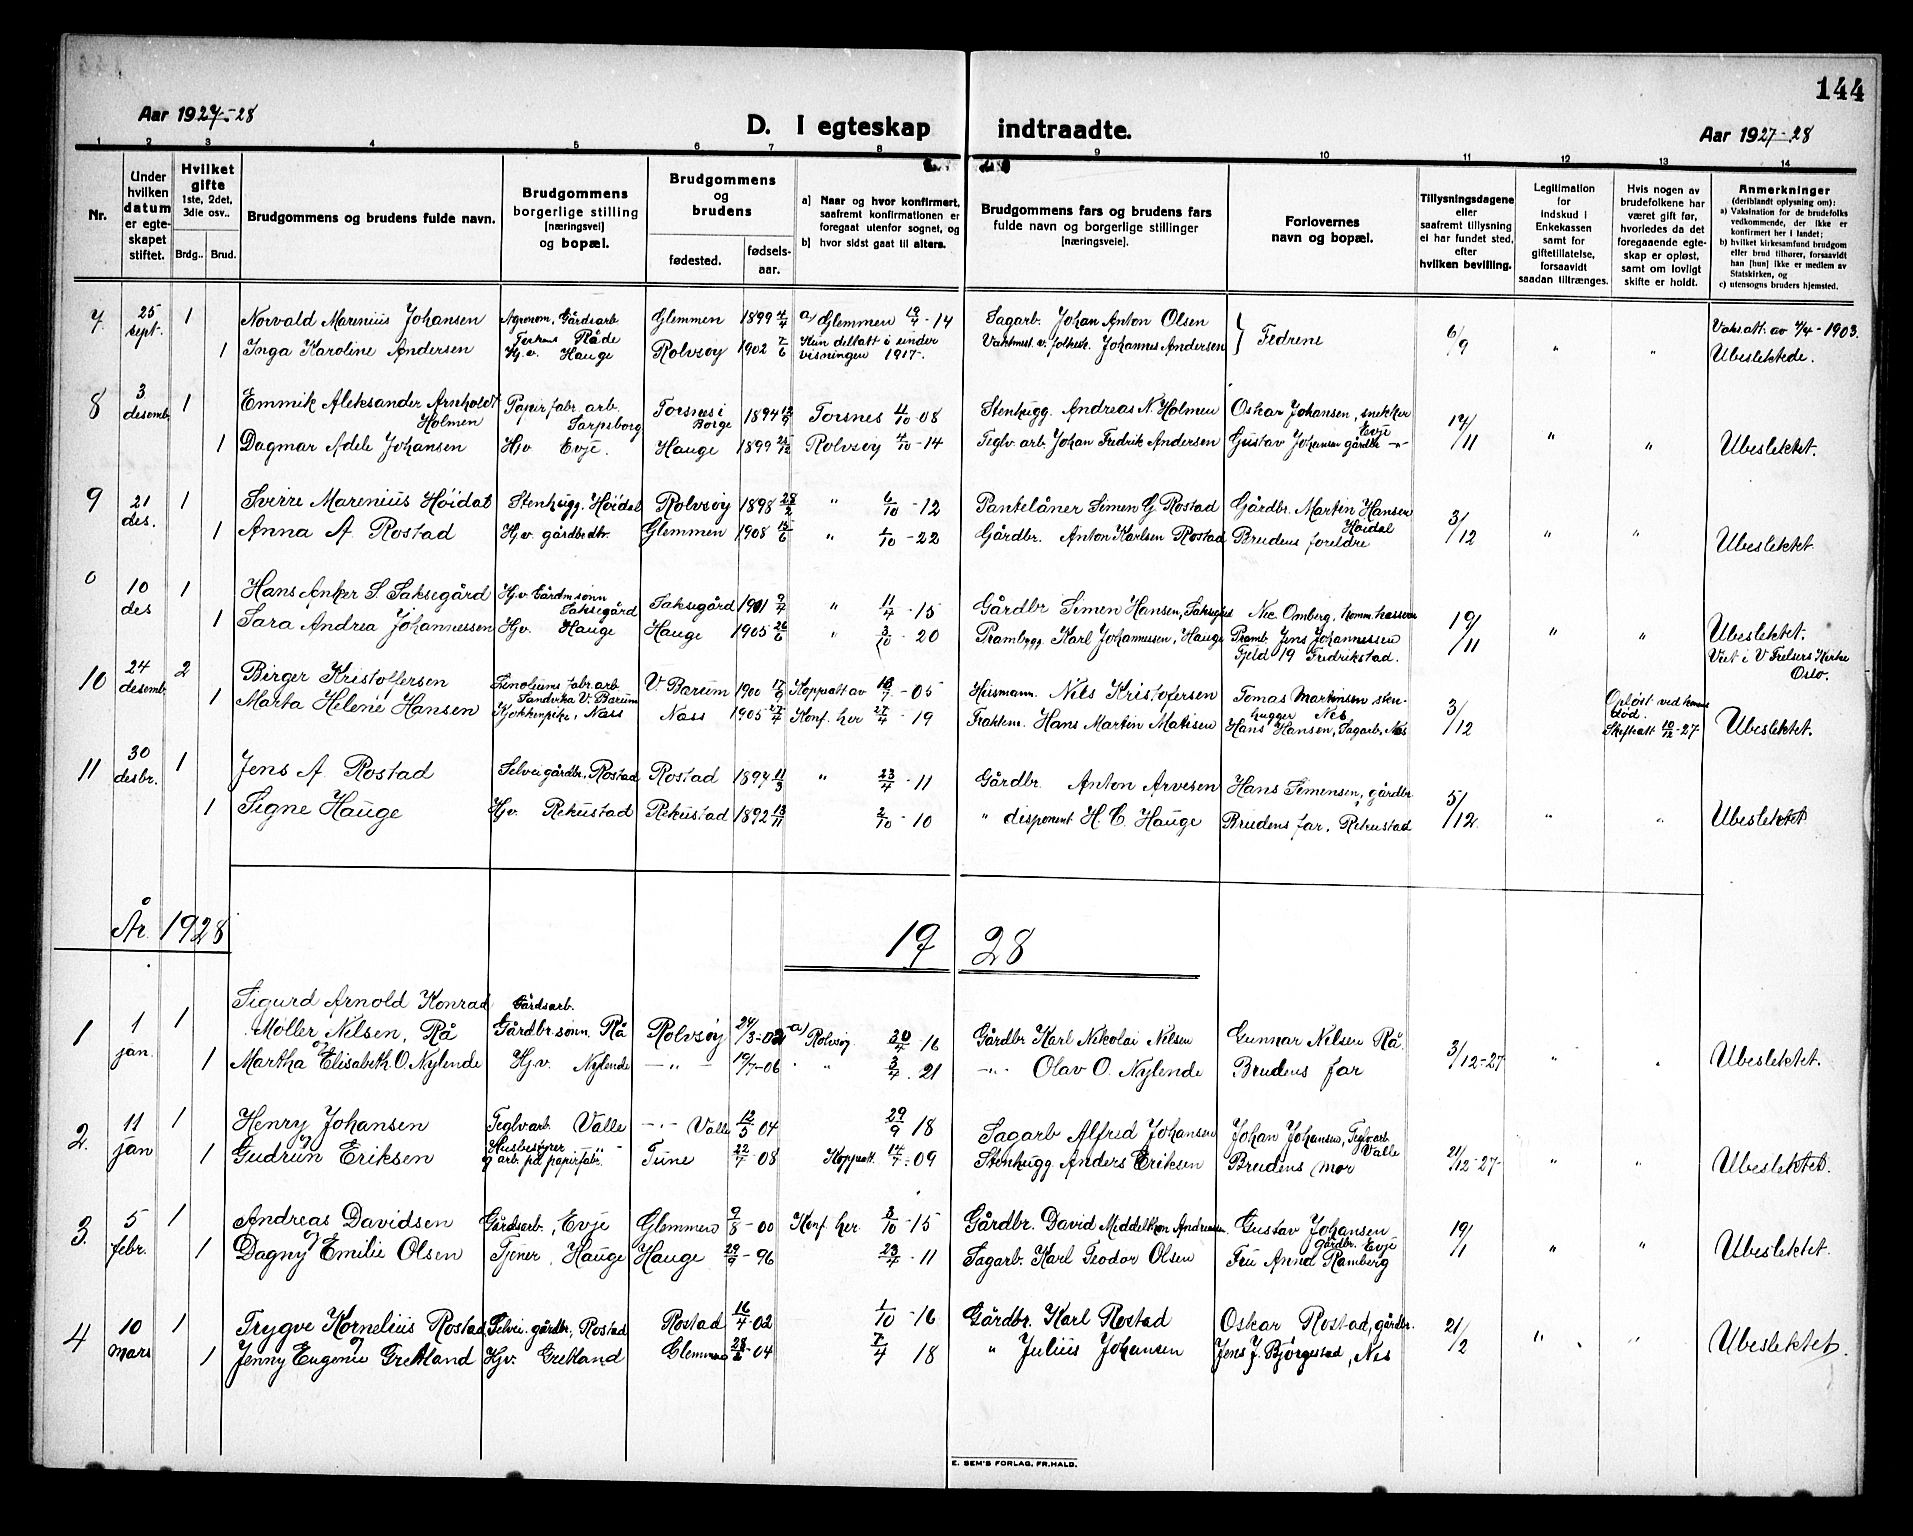 144
Aar 1927-28
D. I egteskap indtraadte.
Aar 1927-28
1 2 3 4 5 6 7 8 9 10 11 12 13 14
Nr.
Under hvilken datum er egte- skapet stiftet.
Hvilket gifte 1ste, 2det, 3die osv..
Brdg.. Brud.
Brudgommens og brudens fulde navn.
Brudgommens borgerlige stilling [næringsvei] og bopæl.
Brudgommens og brudens
fødested.
fødsels- aar.
a) Naar og hvor konfirmert, saafremt konfirmationen er foregaat utenfor sognet, og
b) hvor sidst gaat til alters.
Brudgommens fars og brudens fars fulde navn og borgerlige stillinger [næringsveie].
Forlovernes navn og bopæl.
Tillysningsdagene eller saafremt tillysning ei har fundet sted, efter hvilken bevilling.
Legitimation for indskud i Enkekassen samt for giftetillatelse, forsaavidt saadan tiltrænges.
Hvis nogen av brudefolkene har været gift før, hvorledes da det foregaaende egte- skap er opløst, samt om lovligt skifte er holdt.
Anmerkninger (deriblandt oplysning om):
a) Vaksination for de brudefolks vedkommende, der ikke er konfirmert her i landet;
b) hvilket kirkesamfund brudgom eller brud tilhører, forsaavidt han [hun] ikke er medlem av Statskirken, og
c) utensogns bruders hjemsted.
7 25 sept. 1 Norvald Marenius Johansen Agronom, Gårdsarb Råde Glemmen 1899 4/4 a) Glemmen 19/4 - 14 Sagarb. Johan Anton Olsen } Fedrene 6/9 Vaksatt. av 7/4 - 1903.
1 Inga Karoline Andersen Hj.v. Hauge Rolvsøy 1902 7/6 Hun deltatt i under visningen 1917. Vaktmest. v. folkesk. Johannes Andersen " " Ubeslektede.
8 3 desemb. 1 Emmik Aleksander Arnholdt Holmen Papirfabr. arb. Sarpsborg Torsnes i Borge 1894 Torsnes 4/10 - 08 Stenhugg. Andreas N. Holmen Oskar Johansen, snekker Evje 14/11
1 Dagmar Adele Johansen Hjv Evje. Hauge 1899 Rolvsøy 4/10 - 14 Teglv arb. Johan Fredrik Andersen Gustav Johansen gårdbr -"- " " Ubeslektet.
9 21 des. 1 Sverre Marenius Höidal Stenhugg. Höidal Rolvsøy 1898 28/2 " 6/10 - 12 Pantelåner Simen G. Rostad Gårdbr. Martin Hansen Höidal 3/12
1 Anna A. Rostad Hj.v. gårdbrdtr. Glemmen 1908 15/6 " 1/10 - 22 Gårdbr. Anton Karlsen Rostad Brudens foreldre " " Ubeslektet.
0 10 des 1 Hans Anker S. Saksegård Hj.v Gårdmsønn Saksegård Saksegård 1901 9/4 " 11/4 - 15 Gårdbr Simen Hansen, Saksegård Nic. Omberg, komm. kasserer 19/11
1 Sara Andrea Johannessen Hj.v. Hauge Hauge 1905 26/6 " 3/10 - 20 Prambygg. Karl Johannesen, Hauge Pramb. Jens Johannessen Fjeld 19 Fredrikstad. " " Ubeslektet.
Viet i V Frelsers Kirke Oslo.
10 24 desemb. 2 Birger Kristoffersen Linoleums fabr. arb. Sandvika V. Bærum V. Bærum 1900 17/6 Koppsatt av 18/7 - 05 Heismann. Nils Kristofersen Tomas Martinsen sten- hugger Nes 3/12 Opløst ved konens död. Skiftatt 10/12 - 27
1 Marta Helene Hansen Kjøkkenpike, Næss Næss 1905 27/4 Konf. her 27/4 - 19 Fraktem. Hans Martin Matisen Hans Hansen, Sagarb. Nes Ubeslektet.
11 30 desbr. 1 Jens A. Rostad Selvei gårdbr. Rostad Rostad 1894 11/3 " 23/4 - 11 Gårdbr Anton Arvesen Hans Simensen, gårdbr 5/12
1 Signe Hauge Hj.v Rekustad Rekustad 1892 13/11 2/10 - 10 " disponent H. C. Hauge Brudens far, Rekustad " " Ubeslektet
År 1928 19 28
1 1 jan. 1 Sigurd Arnold Konrad Møller Nilsen, Rå Gårdsarb. Gårdbr.sönn. Rå Rolvsøy 24/3-02 a) Rolvsøy 30/4 - 16 Gårdbr Karl Nikolai Nilsen Gunnar Nilsen Rå. 3/12-27
1 Martha Elisabeth O. Nylende Hj.v. Nylende -"- 19/7-06 " 3/4 . 21 -"- Olav O. Nylende Brudens far " " Ubeslektet.
2. 11 jan 1 Henry Johansen Teglvarb. Valle -"- Valle 12/5 04 29/9 18 Sagarb Alfred Johansen Johan Johansen, Teglvarb Valle 21/12-27-
1 Gudrun Eriksen Husbestyrer og arb. på papirfab. Tune 22/7 - 08 Koppsatt. 14/7 - 09 Stenhugg Anders Eriksen Brudens mor " " Ubeslektet.
3. 5 febr. 1 Andreas Davidsen Gårdsarb., Evje Glemmen 9/8 - 00 Konf. her 3/10 - 15 Gårdbr. David Middelthon Andreasen Gustav Johansen gårdbr. Evje 19/1
og
1 Dagny Emilie Olsen Tjener, Hauge Hauge 29/9 - 96 23/4 - 11 Sagarb. Karl Teodor Olsen Fru Anna Ramberg " " Ubeslektet.
4 10 mars 1 Trygve Kornelius Rostad Selvei. gårdbr., Rostad Rostad 16/4 - 02 1/10 - 16 Gårdbr. Karl Rostad Oskar Rostad, gårdbr. 21/2
og
1 Jenny Eugenie Grekland Hjv. Grekland Glemmen - 04 7/4 18 " Julius Johansen Jens J. Björgestad, Nes " " Ubeslektet.
E. SEM'S FORLAG, FR.HALD.